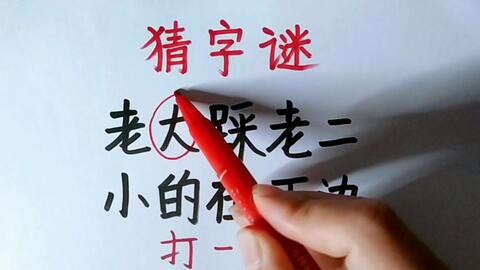 猜字谜
老大踩老二
小的在下边
打一